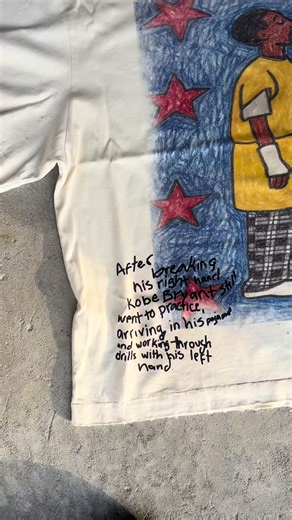 After
breaking
his right hand
Kobe Bryant still
went to practice,
arriving in his pajamas
and working through
drills with his left
hand